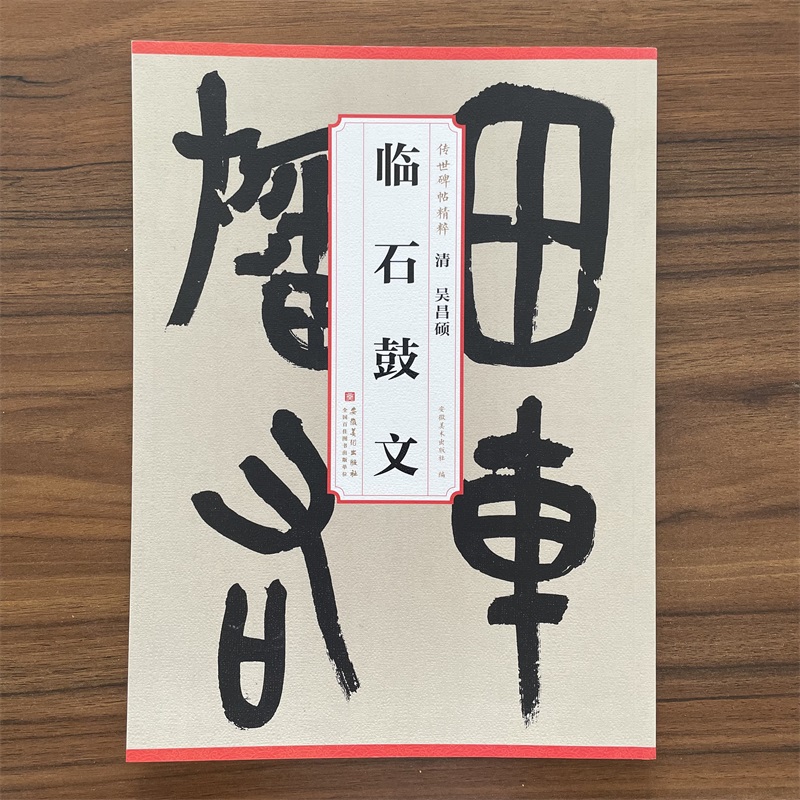 田車
传世碑帖精粹 清 吴昌硕
安徽美术出版社 编
临石鼓文
安徽美术出版社
全国百佳图书出版单位